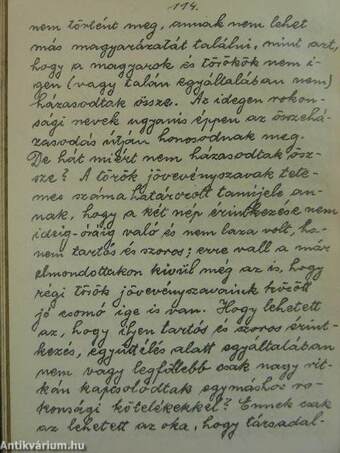 114.
nem történt meg, annak nem lehet
más magyarázatát találni, mint azt,
hogy a magyarok és törökök nem i-
gen (vagy talán egyáltalában nem)
házasodtak össze. Az idegen rokon-
sági nevek ugyanis éppen az összehá-
zasodás útján honosodnak meg.
De hát miért nem házasodtak ösz-
sze? A török jövevényszavak tete-
mes száma határozott tanujele an-
nak, hogy a két nép érintkezése nem
ideig-óráig való és nem laza volt, ha-
nem tartós és szoros; erre vall a már
elmondottakon kívül még az is, hogy
régi török jövevényszavaink között
jó csomó ige is van. Hogy lehetett
az, hogy ilyen tartós és szoros érint-
kezés, együttélés alatt egyáltalában
nem vagy legfölebb csak nagy rit-
kán kapcsolódtak egymáshoz ro-
konsági kötelékekkel? Ennek csak
az lehetett az oka, hogy társadal-
Antikvárium.hu